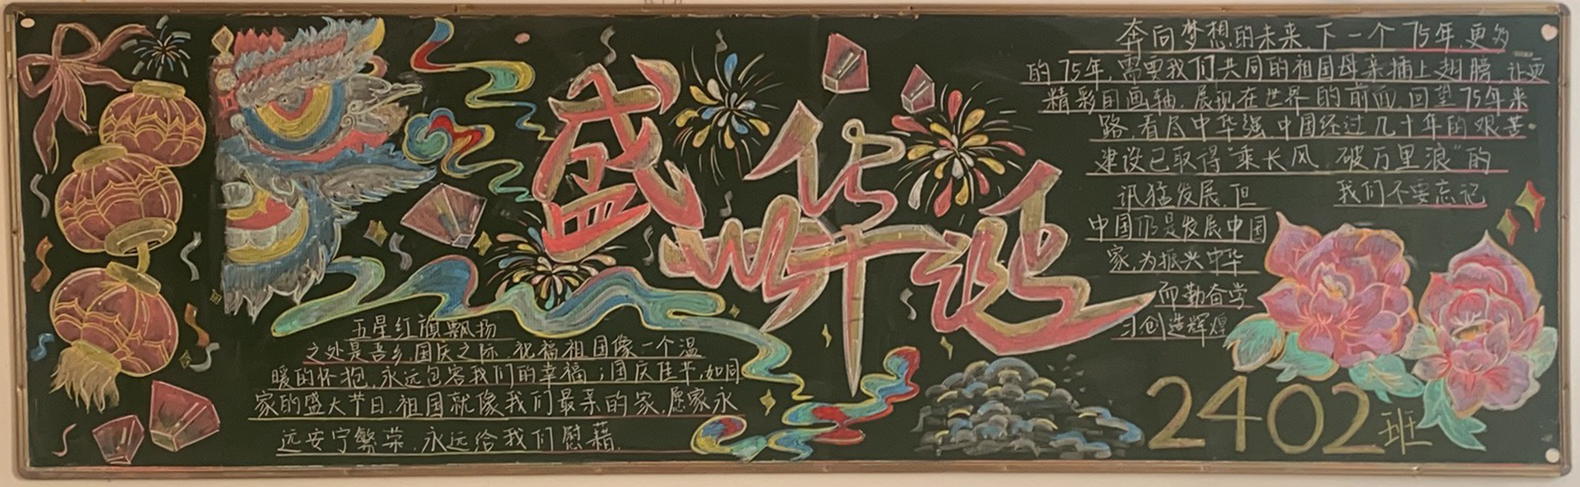 盛华诞
五星红旗飘扬
之处是吾乡,国庆之际,祝福祖国像一个温
暖的怀抱,永远包容我们的幸福;国庆佳节,如同
家的盛大节日,祖国就像我们最亲的家,愿家永
远安宁繁荣,永远给我们慰藉.
奔向梦想的未来,下一个75年,更多
的75年,需要我们共同的祖国母亲插上翅膀,让更
精彩的画轴,展现在世界的前面,回望75年来
路,看尽中华强,中国经过几十年的艰苦
建设已取得"乘长风,破万里浪"的
讯猛发展,但 我们不要忘记
中国仍是发展中国
家,为振兴中华
而勤奋学
习创造辉煌
2402班